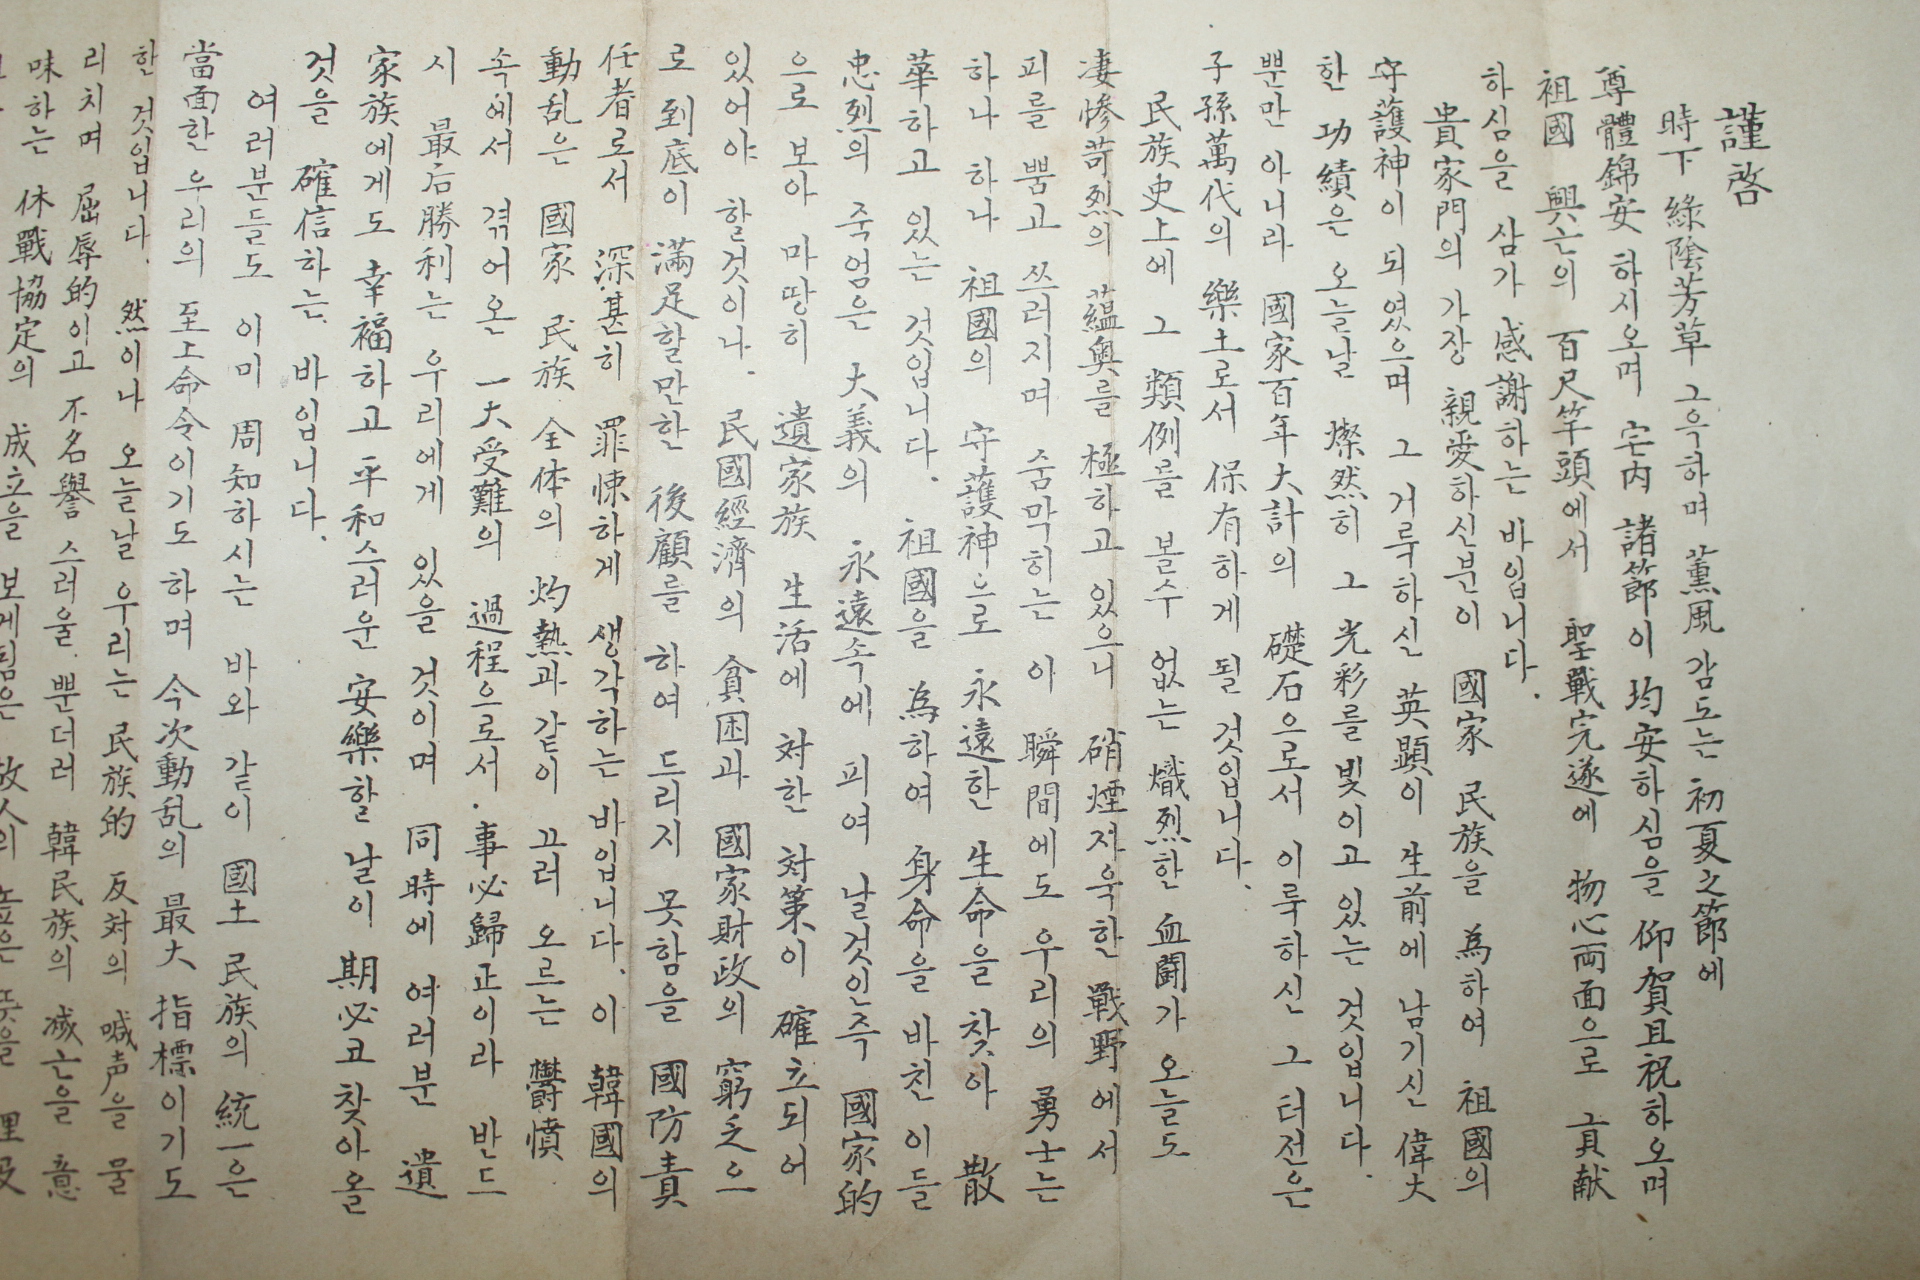 謹啓
時下 綠陰芳草 그윽하며 薰風 감도는 初夏之節에
尊體錦安 하시오며 宅內 諸節이 均安하심을 仰賀且祝하오며
祖國 興亡의 百尺竿頭에서 聖戰完遂에 物心両面으로 貢献
하심을 삼가 感謝하는 바입니다.
貴家門의 가장 親愛하신분이 國家 民族을 為하여 祖國의
守護神이 되였으며 그 거룩하신 英顕이 生前에 남기신 偉大
한 功績은 오늘날 燦然히 그 光彩를 빛이고 있는 것입니다.
뿐만 아니라 國家百年大計의 礎石으로서 이룩하신 그 터전은
子孫萬代의 樂土로서 保有하게 될 것입니다.
民族史上에 그 類例를 볼수 없는 熾烈한 血鬪가 오늘도
凄慘苛烈의 蘊奧를 極하고 있으니 硝煙자욱한 戰野에서
피를 뿜고 쓰러지며 숨막히는 이 瞬間에도 우리의 勇士는
하나 하나 祖國의 守護神으로 永遠한 生命을 찾아 散
華하고 있는 것입니다. 祖國을 為하여 身命을 바친 이들
忠烈의 죽엄은 大義의 永遠속에 피여 날것인즉 國家的
으로 보아 마땅히 遺家族 生活에 対한 対策이 確立되어
있어야 할것이나. 民國經濟의 貧困과 國家財政의 窮乏으
로 到底이 滿足할만한 後顧를 하여 드리지 못함을 國防責
任者로서 深甚히 罪悚하게 생각하는 바입니다. 이 韓國의
動乱은 國家 民族 全体의 灼熱과 같이 끄러 오르는 鬱憤
속에서 겪어온 一大受難의 過程으로서. 事必歸正이라 반드
시 最后勝利는 우리에게 있을 것이며 同時에 여러분 遺
家族에게도 幸福하고 平和스러운 安樂할 날이 期必코 찾아올
것을 確信하는 바입니다.
여러분들도 이미 周知하시는 바와 같이 國土 民族의 統一은
當面한 우리의 至上命令이기도 하며 今次動乱의 最大 指標이기도
한 것입니다. 然이나 오늘날 우리는 民族的 反対의 喊声을 물
리치며 屈辱的이고 不名譽 스러울 뿐더러 韓民族의 滅亡을 意
味하는 休戰協定의 成立을 보게됨은 故人의 높은 뜻을